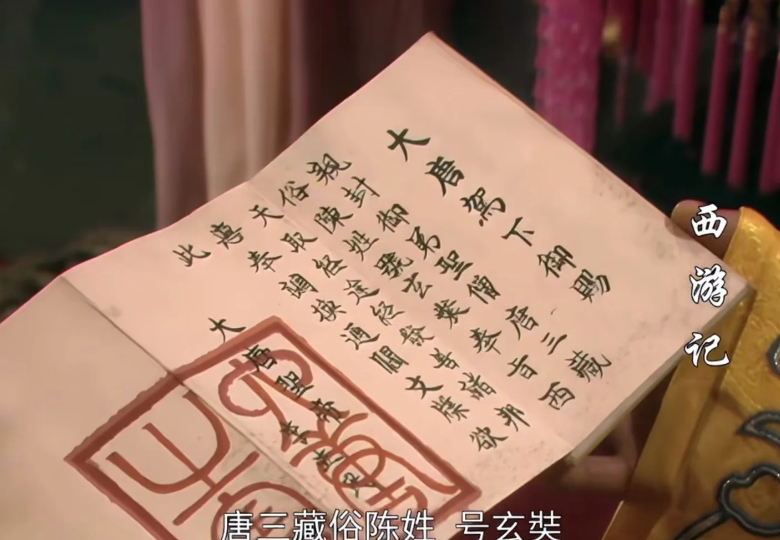 大唐駕下御賜
親封御弟聖僧唐三藏
俗陳姓號玄奘奉旨西
天取經途經發吾諸邦
專奉調換通關文牒欽
此
大唐聖帝李
西游记
唐三藏俗陈姓 号玄奘